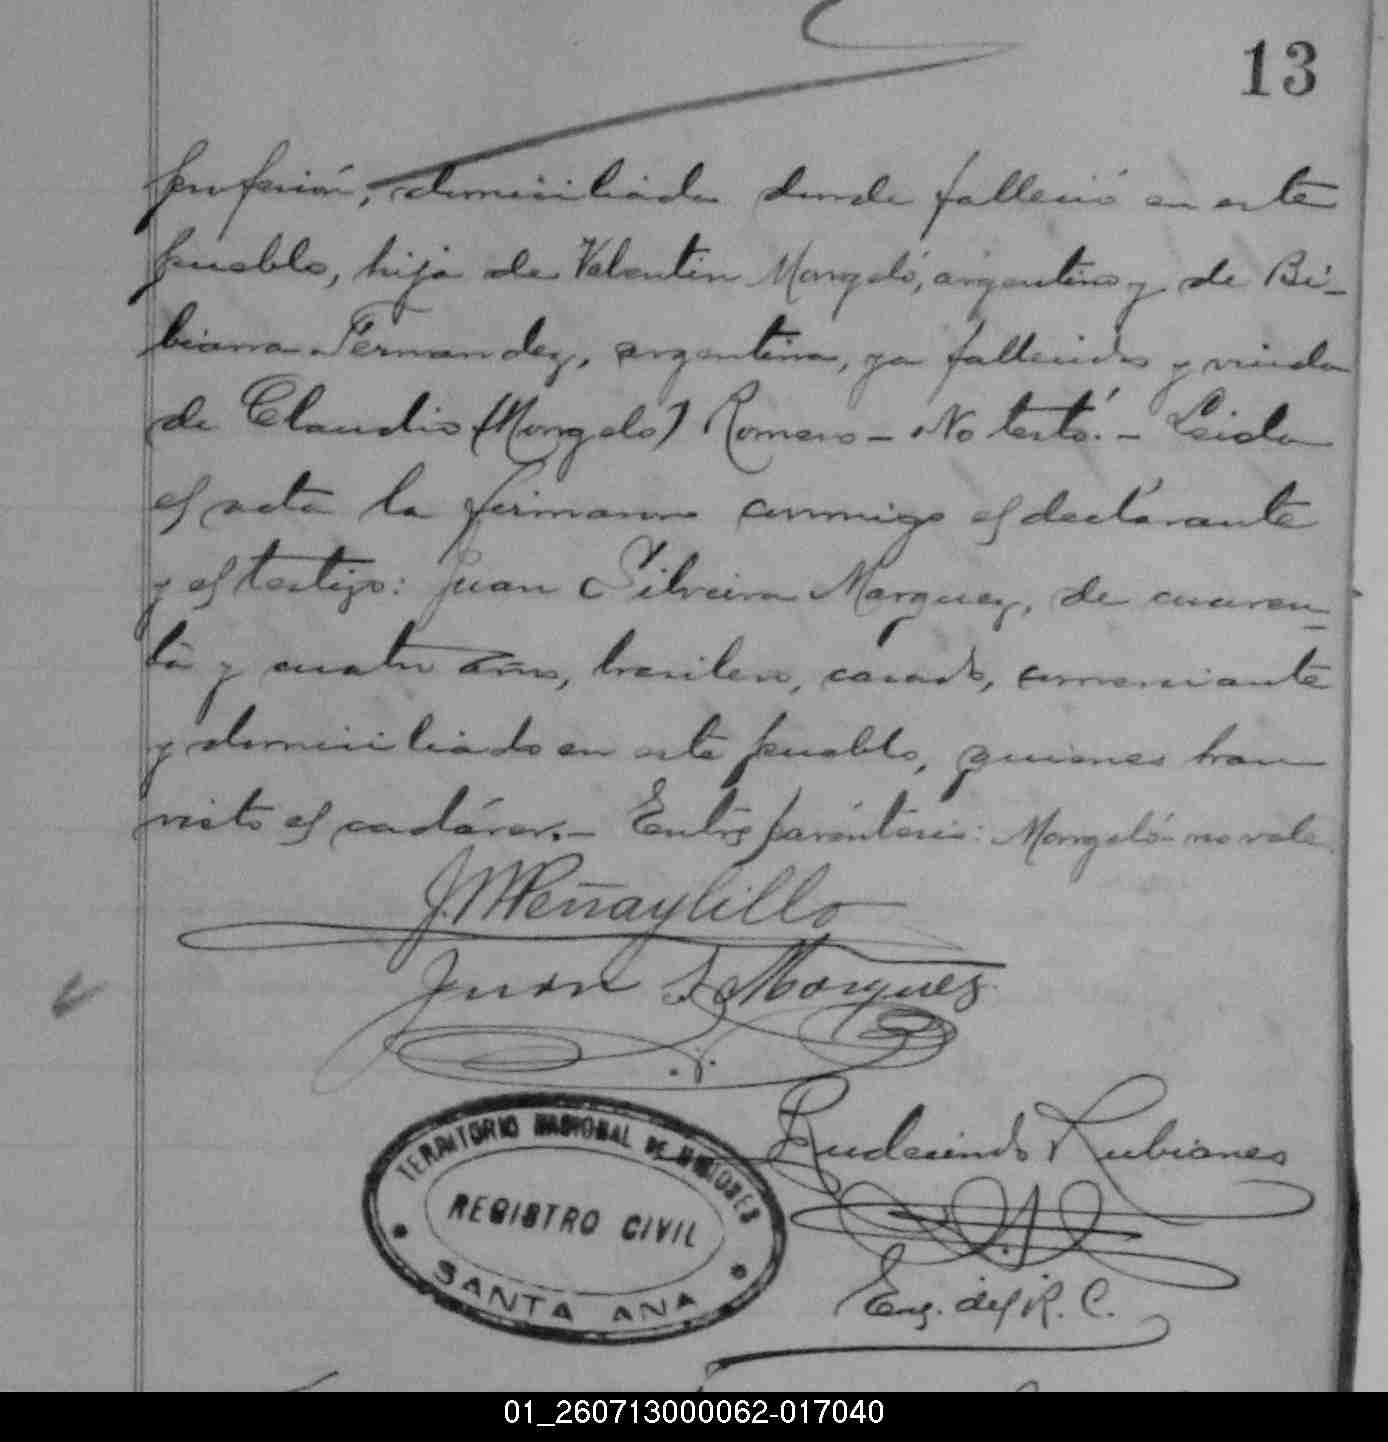 13
profesión, domiciliada donde falleció en este
pueblo, hija de Valentin Mongeló, argentino y de Bi-
biana Fernandez, argentina, ya fallecidos y viuda
de Claudio (Mongelo) Romero - No testó. - Leida
el acta la firmaron conmigo el declarante
y el testigo: Juan Silveira Marquez, de cuaren-
ta y cuatro años, brasilero, casado, comerciante
y domiciliado en este pueblo, quienes han
visto el cadáver. - Entre paréntesis: Mongeló no vale.
J. M Peñaylillo
Juan S Marques
TERRITORIO NACIONAL DE MISIONES
REGISTRO CIVIL
SANTA ANA
Rudesindo Rubianes
Enc. del R. C.
01_260713000062-017040